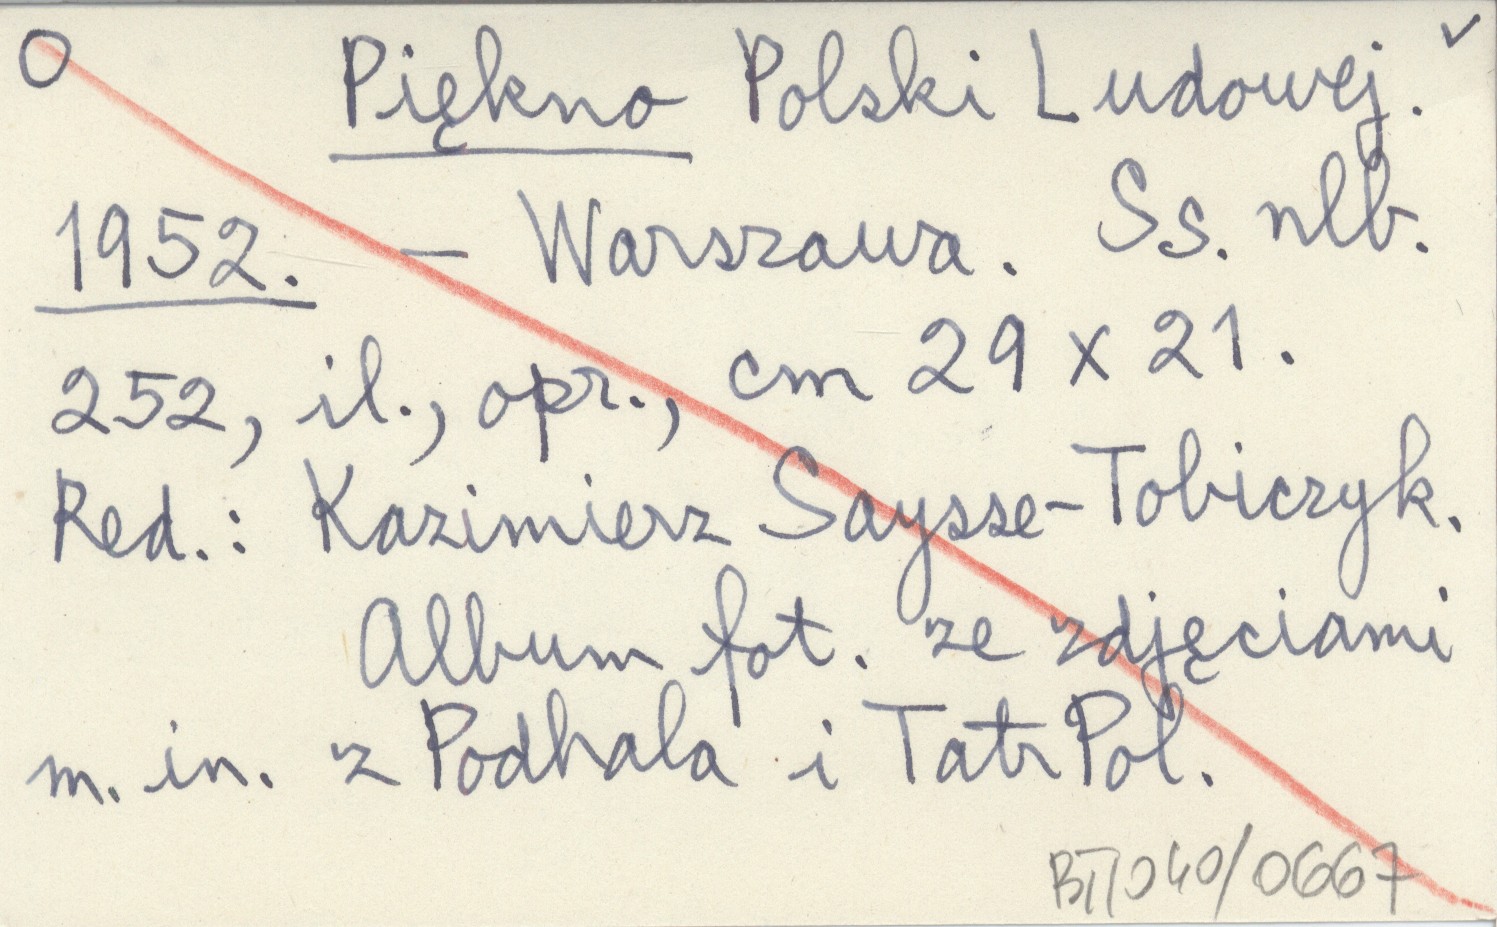 O Piękno Polski Ludowej. ✓
1952. – Warszawa. Ss. nlb.
252, il., opr., cm 29 x 21.
Red.: Kazimierz Saysse-Tobiczyk.
Album fot. ze zdjęciami
m. in. z Podhala i Tatr Pol.
BT/040/0667